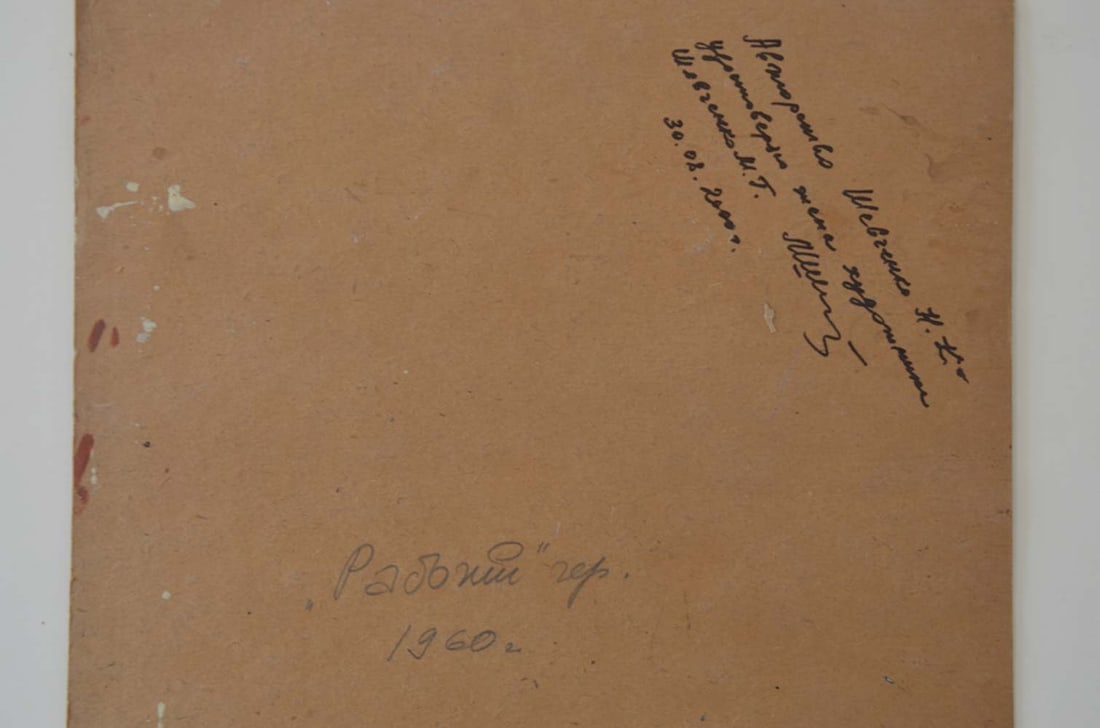 Авторство Шевченко Н. К.
удостоверяю жена художника
Шевченко М. Г.
30.08.2000г.
„Рабочий"
1960г